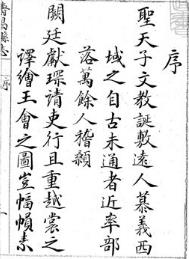 序
聖天子文教誕敷遠人慕義西
域之自古未通者近率部
落萬餘人稽顙
闕廷獻琛請吏行且重越裳之
譯繪王會之圖豈幅幀素
縣志
序